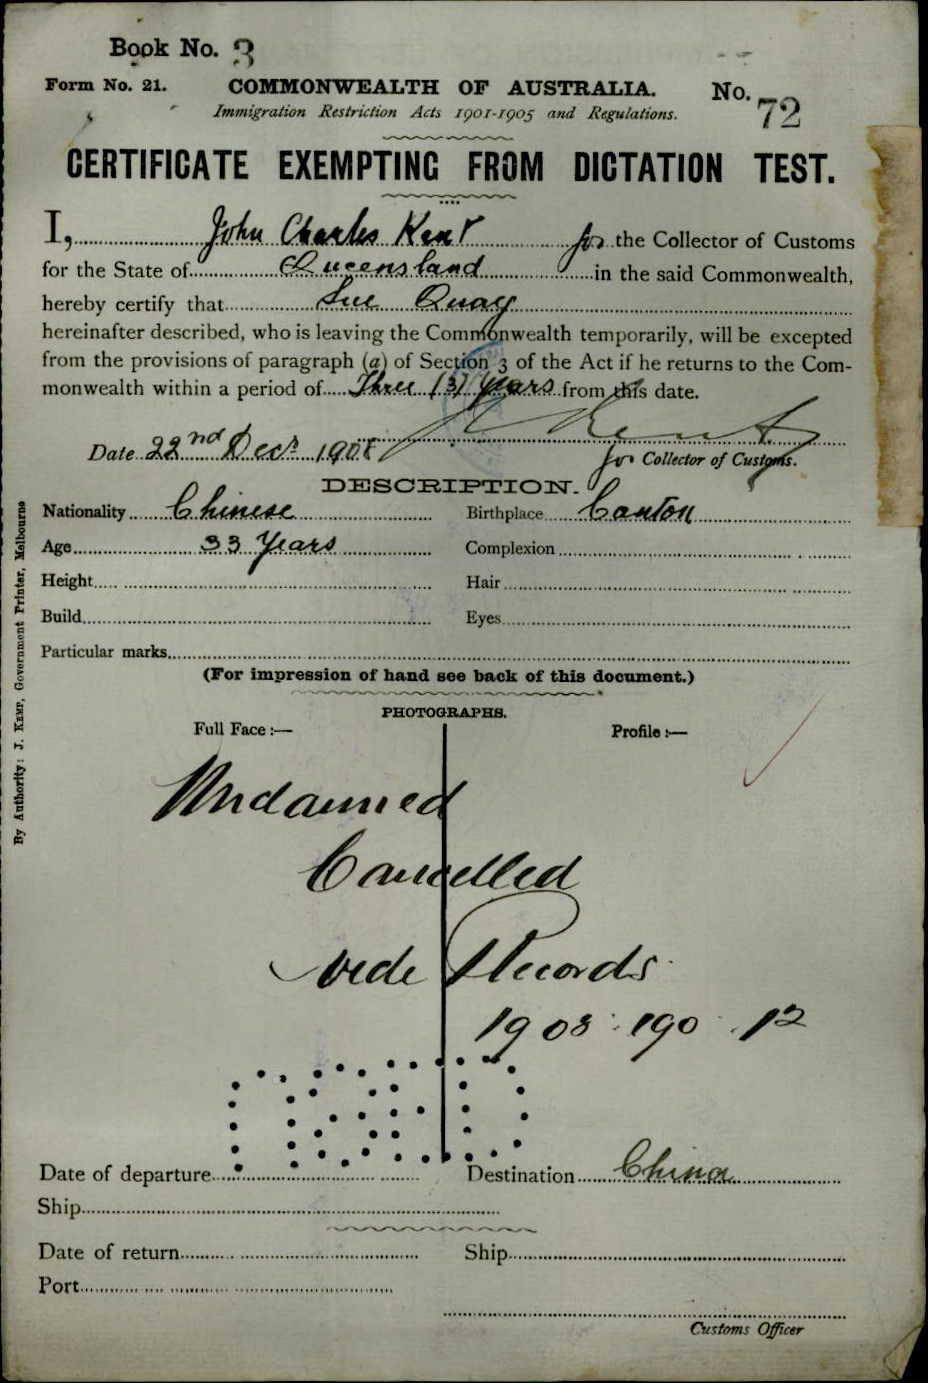 Book No. 3
Form No. 21. COMMONWEALTH OF AUSTRALIA. No. 72
Immigration Restriction Acts 1901-1905 and Regulations.
CERTIFICATE EXEMPTING FROM DICTATION TEST.
I, John Charles Kent for the Collector of Customs
for the State of Queensland in the said Commonwealth,
hereby certify that Sue Quay
hereinafter described, who is leaving the Commonwealth temporarily, will be excepted
from the provisions of paragraph (a) of Section 3 of the Act if he returns to the Com-
monwealth within a period of Three (3) Years from this date.
Kent
Date 22nd Decr 1908 for Collector of Customs.
DESCRIPTION.
Nationality Chinese Birthplace Canton
Age 33 Years Complexion
Height Hair
Build Eyes
Particular marks
(For impression of hand see back of this document.)
PHOTOGRAPHS.
Full Face :— Profile :—
Unclaimed
Cancelled
vide Records
1908 . 190 . 12
Date of departure Destination China
Ship
Date of return Ship
Port
Customs Officer
By Authority: J. KEMP, Government Printer, Melbourne